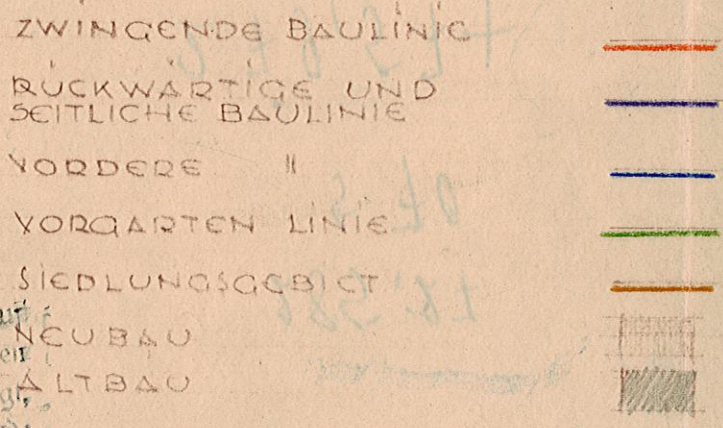 ZWINGENDE BAULINIE
RÜCKWÄRTIGE UND
SEITLICHE BAULINIE
VORDERE "
VORGARTEN LINIE
SIEDLUNGSGEBIET
NEUBAU
ALTBAU